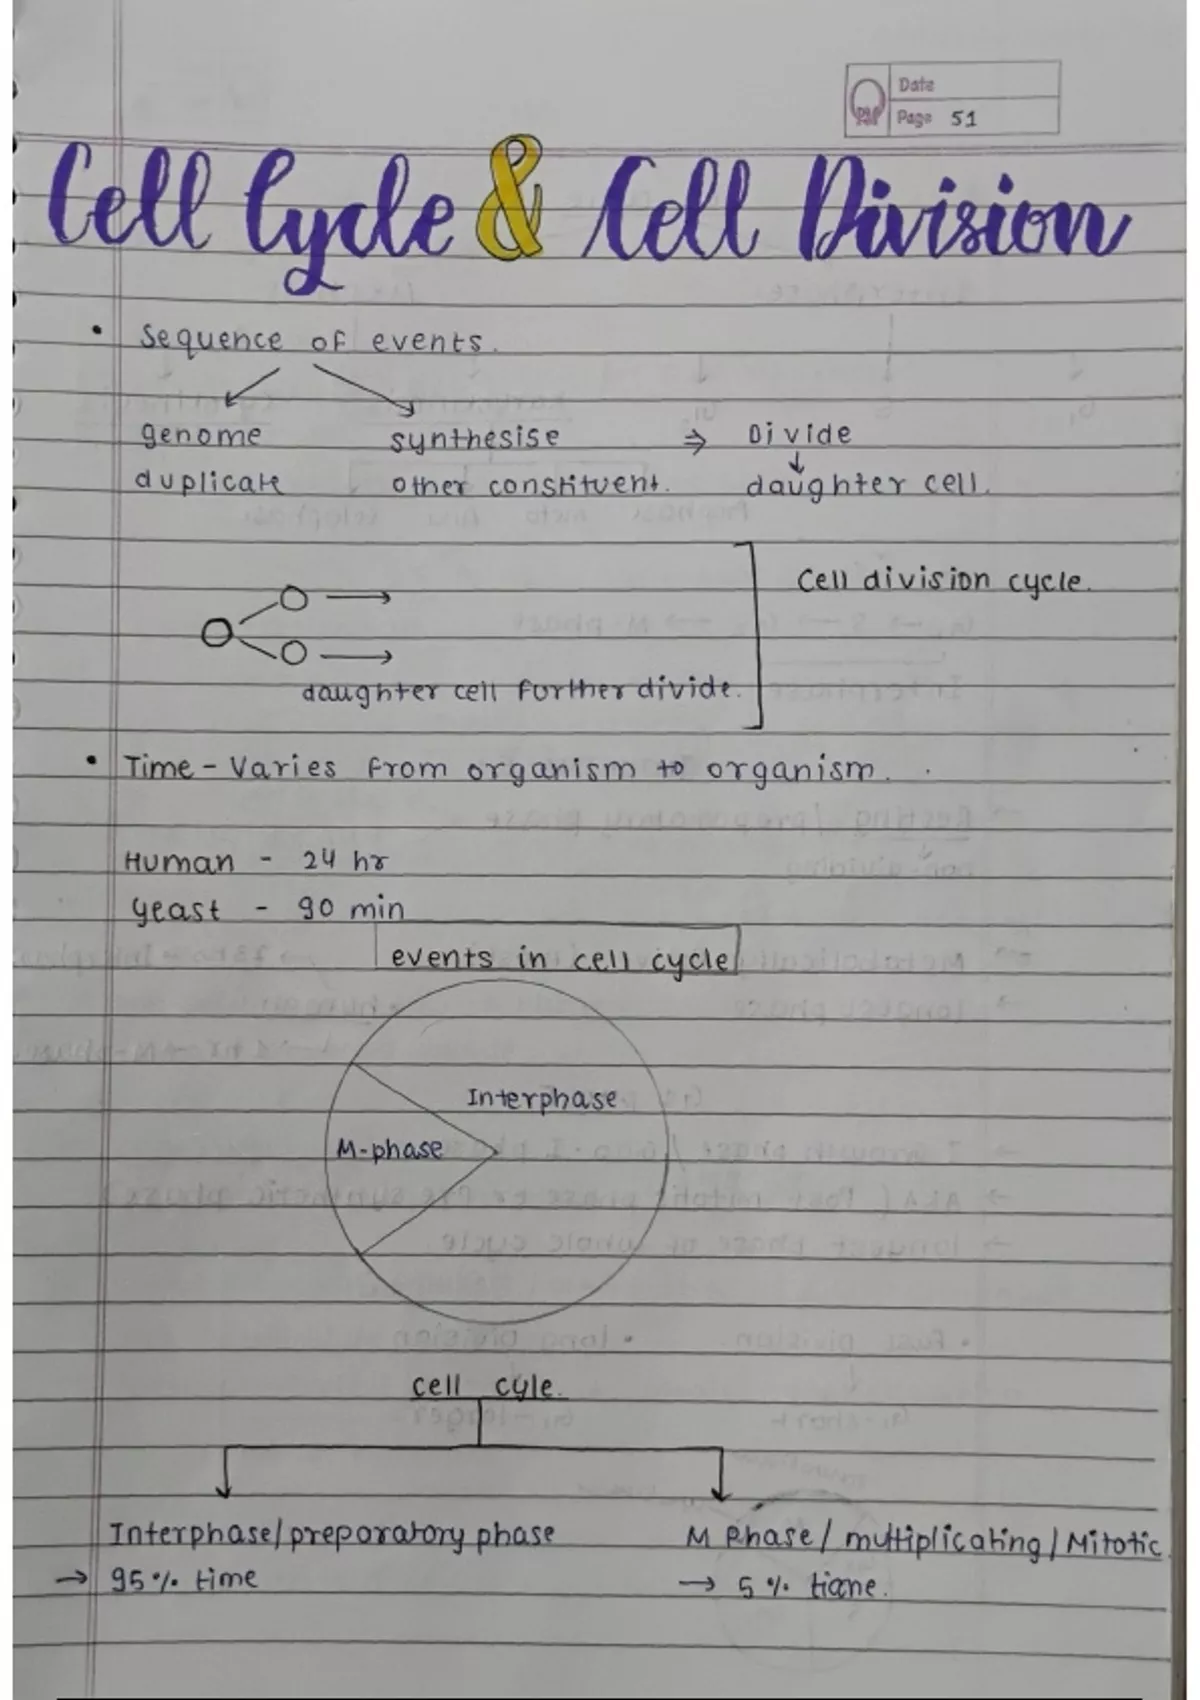 Date
Page 51
Cell Cycle & Cell Division
• Sequence of events.
genome synthesise ⇒ Divide
duplicate other constituent. daughter cell.
Cell division cycle.
daughter cell further divide.
• Time - Varies from organism to organism.
Human - 24 hr
yeast - 90 min
events in cell cycle
Interphase
M-phase
cell cyle.
Interphase/preporatory phase M Phase / multiplicating / Mitotic
→ 95% time → 5 % time.